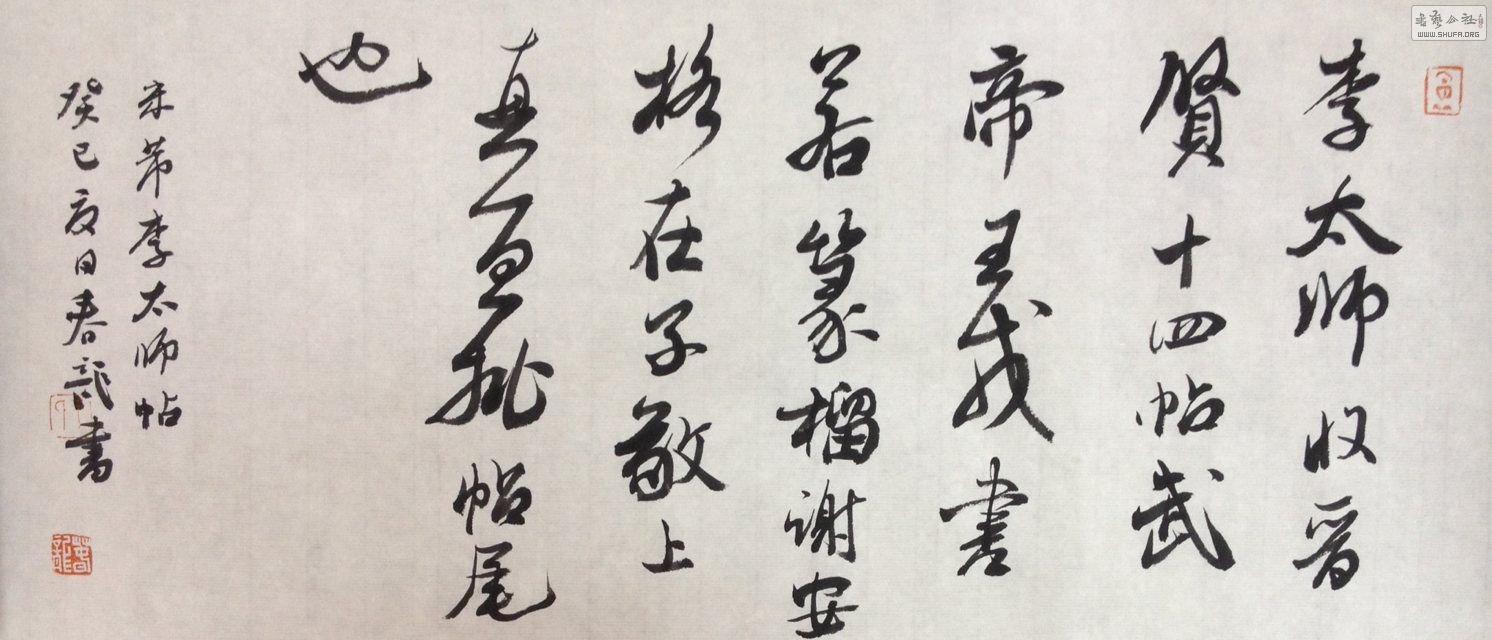 李太师收晋
贤十四帖武
帝王戎书
若篆籀谢安
格在子敬上
真宜批帖尾
也
米芾李太师帖
癸巳夏日春龙书
书艺公社
WWW.SHUFA.ORG